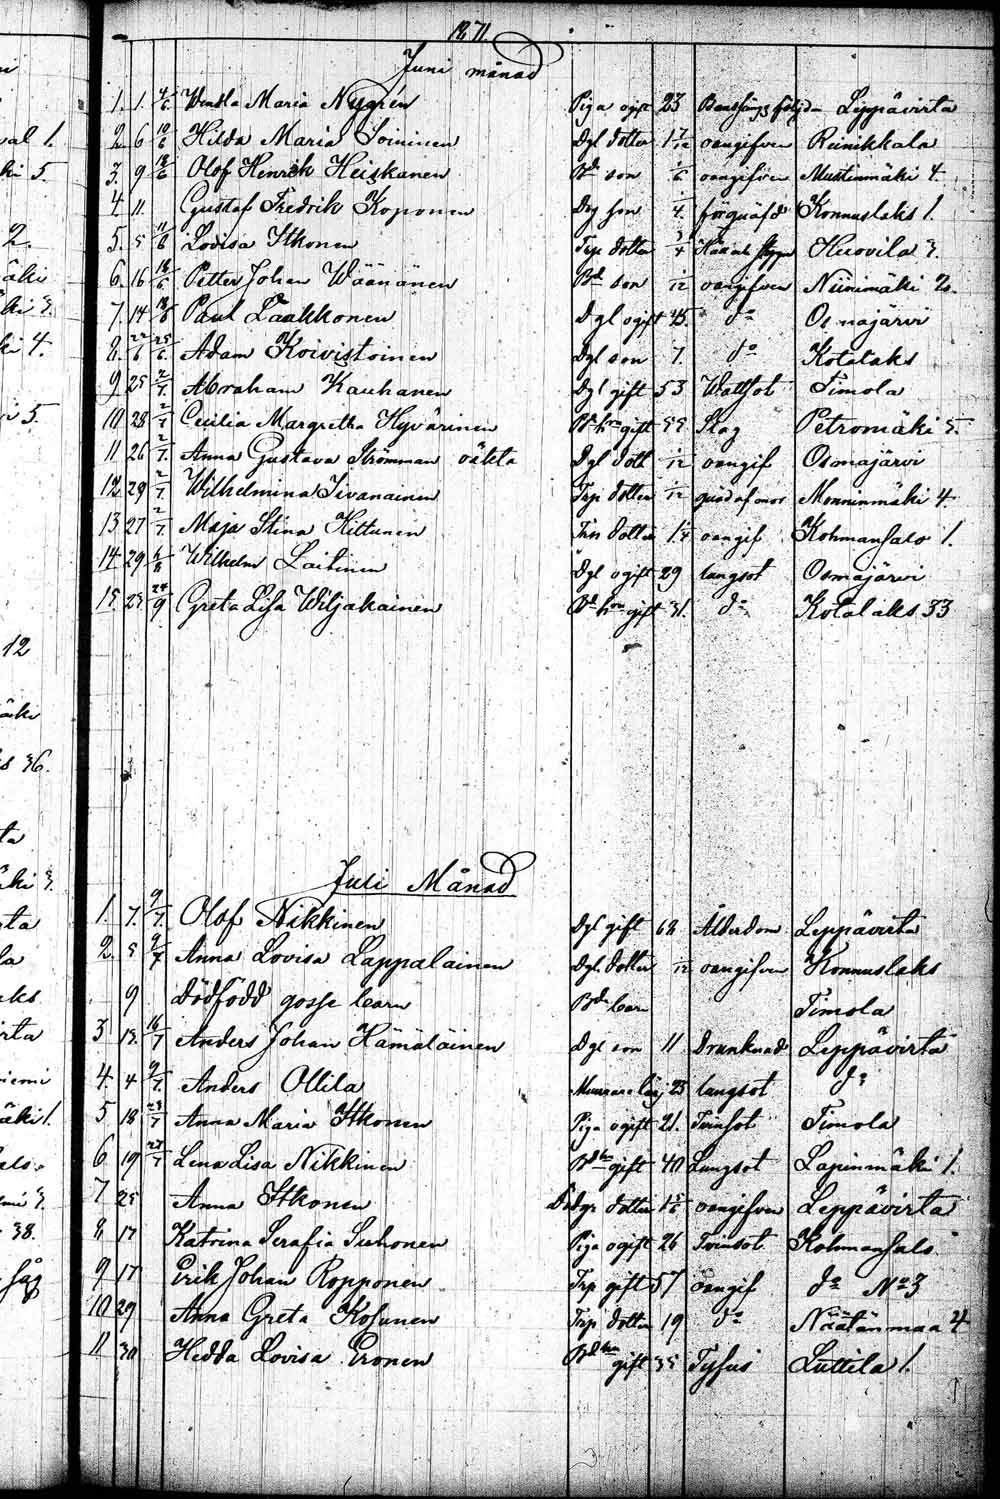 1871.
Juni månad
1. 1. 4/6 Wendla Maria Nygrén Piga ogift 23 Barnsängs följd Leppävirta
2 6 10/6 Hilda Maria Soininen Dgl dotter 1 7/12 oangifven Reinikkala
3. 9 18/6 Olof Henrik Heiskanen Bd son 1/6 oangifven Mustinmäki 4.
4. 11 Gustaf Fredrik Koponen Drg son förqväfd Konnuslaks 1.
5. 5 11/6 Lovisa Itkonen Trp dotter 3/4 Huovila 3.
6. 16 18/6 Petter Johan Wäänänen Bd son 1/12 oangifven Niinimäki 2.
7. 14 18/6 Paul Laakkonen Dgl ogift 45. do Osmajärvi
8. 22/6 25/6 Adam Koivistoinen Dgl son 7. do Kotalaks
9 25 2/7 Abraham Kauhanen Dgl gift 53 Wattsot Timola
10 28 2/7 Cecilia Margretha Hyvärinen Bd hru gift 55 Slag Petromäki 5.
11 26 2/7 Anna Gustava Strömman oäkta Dgl dott 1/12 oangif Osmajärvi
12 29 2/7 Wilhelmina Iivanainen Trp dotter 1/12 qväfd af mor Monninmäki 4.
13 27 2/7 Maja Stina Kittunen Trp dotter oangif Kohmansalo 1.
14 29 Wilhelm Laitinen Dgl ogift 29 lungsot Osmajärvi
15 25 24/9 Greta Lisa Wiljakainen Bd hru gift 31. do Kotalaks 33
Juli Månad
1 7. 9/7. Olof Nikkinen Dgl gift 62 Ålderdom Leppävirta
2. 5 9/7 Anna Lovisa Lappalainen Dgl. dotter 1/12 oangifven Konnuslaks
9 Dödfödd gosse barn Bde barn Timola
3 13. 16/7 Anders Johan Hämäläinen Dgl son 11 Drunknad Leppävirta
4. 4 9/7. Anders Ollila 25 lungsot do
5 18 23/7 Anna Maria Itkonen Piga ogift 21. Tvinsot Timola
6 19 23/7 Lena Lisa Nikkinen Bd hu gift 40 Lungsot Lapinmäki 1.
7 25 Anna Itkonen dotter 1 5/6 oangifven Leppävirta
8 17 Katrina Serafia Suhonen Piga ogift 26 Tvinsot Kohmansalo
9 17 Erik Johan Ropponen Trp gift 57 oangif do No 3
10 29 Anna Greta Kosunen Trp dotter 19 do Näätänmaa 4
11 30 Hedda Lovisa Eronen Bd hu gift 35 Tyfus Luttila 1.